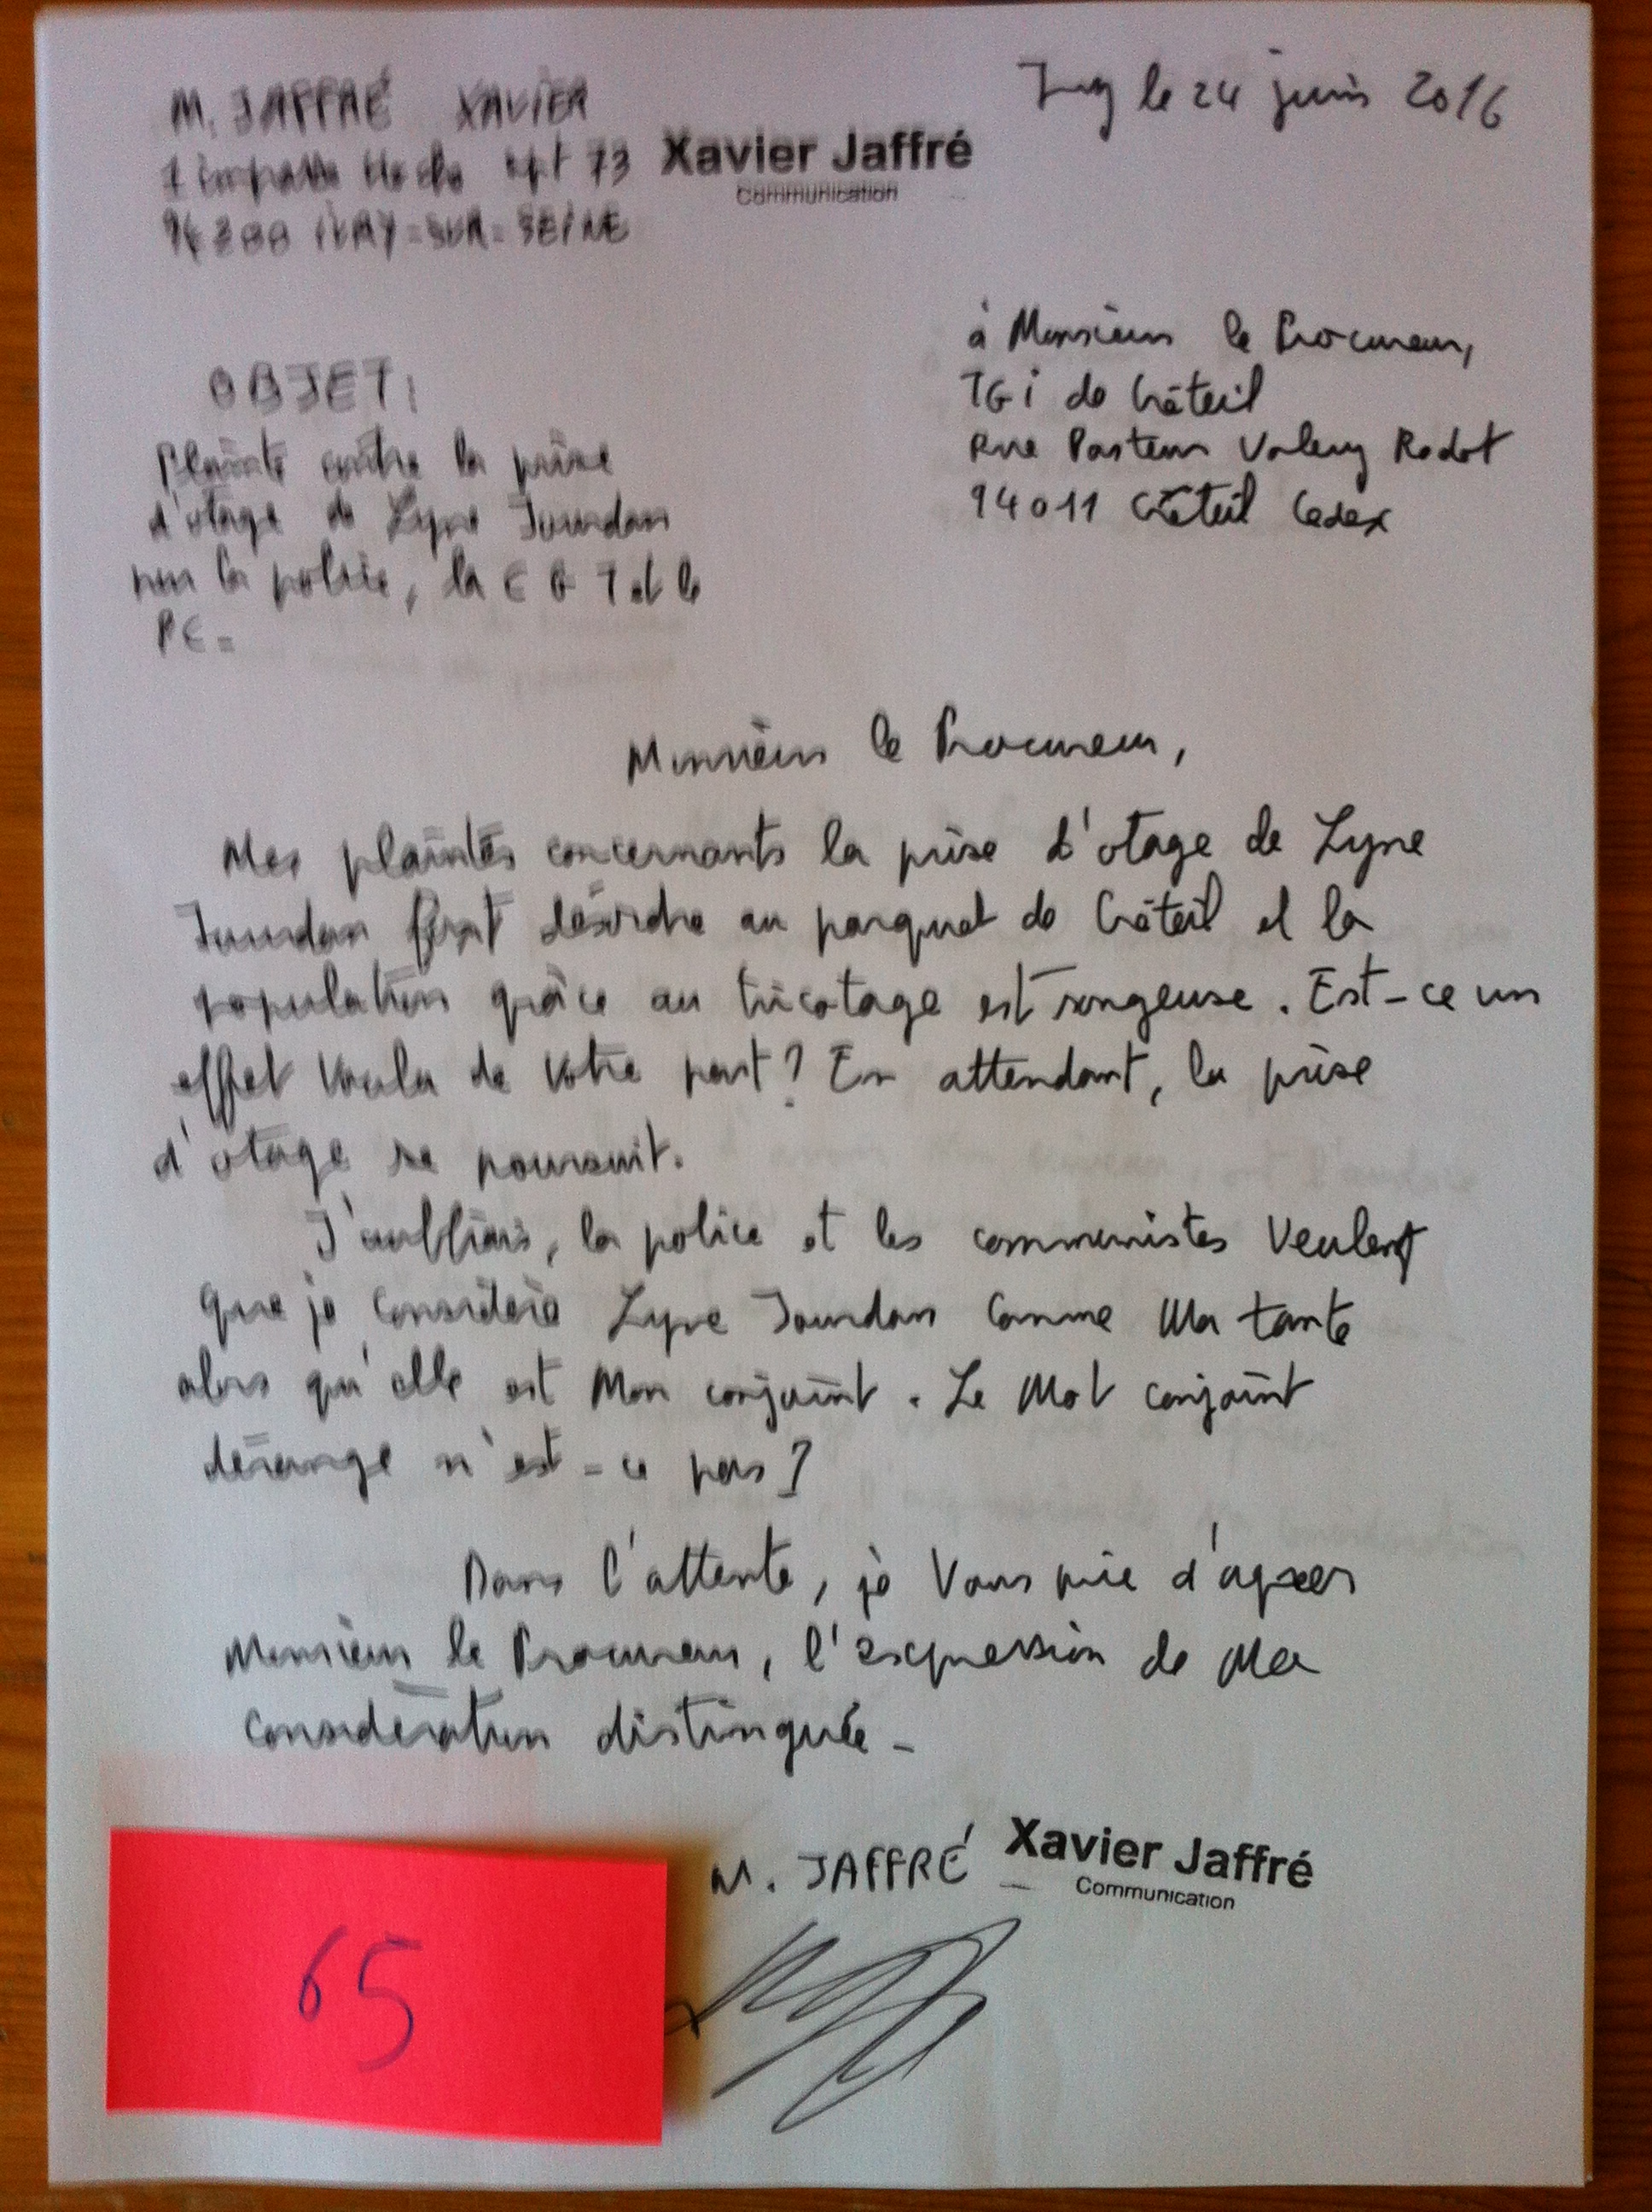 M. JAFFRÉ XAVIER
1 impasse Hoche apt 73
94200 iVRY-SUR-SEiNE
Xavier Jaffré
Communication
Ivry le 24 juin 2016
à Monsieur le Procureur,
TGi de Créteil
Rue Pasteur Valery Radot
94011 Créteil Cedex
OBJET:
Plainte contre la prise
d'otage de Lyne Jourdan
par la police, la CGT et le
PC.
Monsieur le Procureur,
Mes plaintes concernants la prise d'otage de Lyne
Jourdan font désordre au parquet de Créteil et la
population grâce au tricotage est songeuse. Est-ce un
effet voulu de votre part? En attendant, la prise
d'otage se poursuit.
J'oubliais, la police et les communistes veulent
que je considère Lyne Jourdan comme ma tante
alors qu'elle est mon conjoint. Le mot conjoint
dérange n'est-ce pas?
Dans l'attente, je vous prie d'agréer
Monsieur le Procureur, l'expression de ma
considération distinguée.
M. JAFFRÉ
Xavier Jaffré
Communication
65